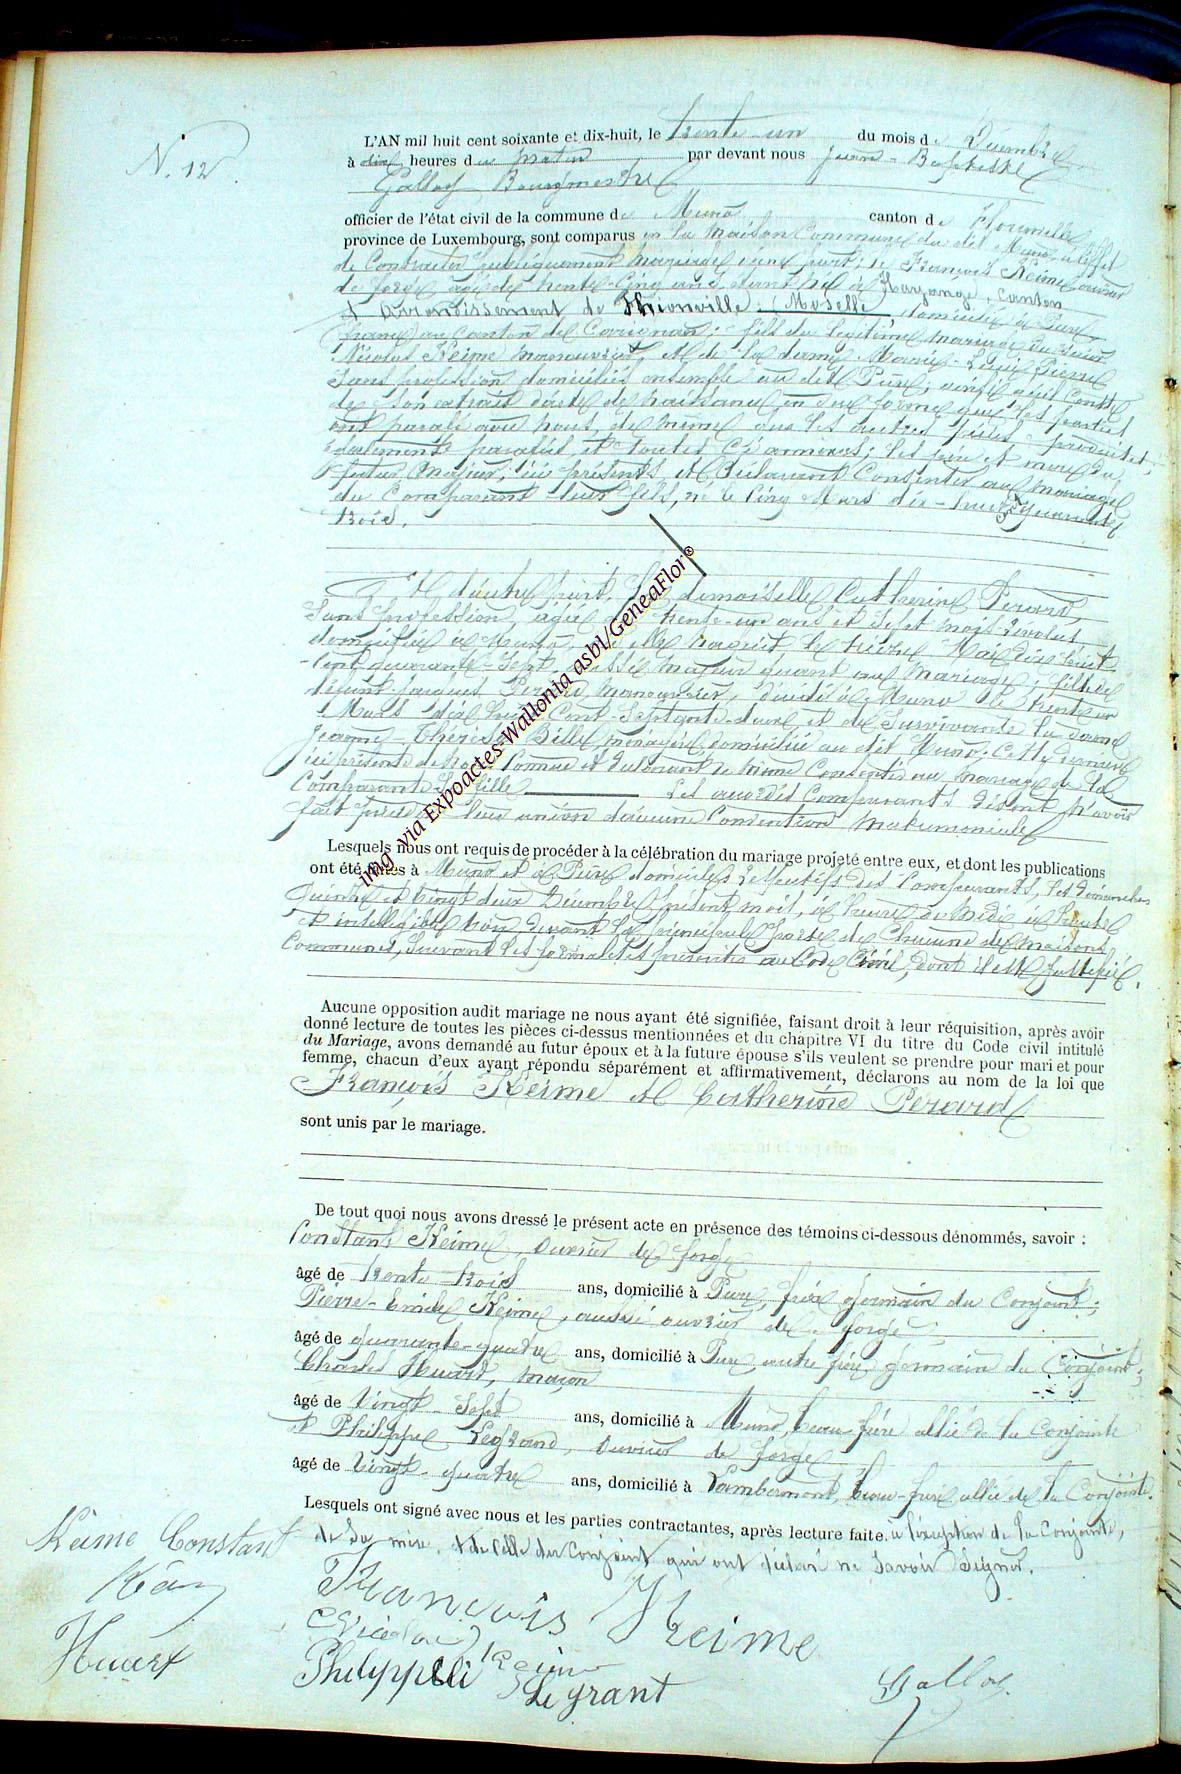 N. 12
L'AN mil huit cent soixante et dix-huit, le trente-un du mois de Décembre
à dix heures du matin par devant nous Jean-Baptiste
Galloy Bourgmestre
officier de l'état civil de la commune de Muno canton de Florenville
province de Luxembourg, sont comparus en la maison Commune du dit Muno, à l'effet
de Contracter publiquement mariage d'une part: le François Keime, ouvrier
de forge, âgé de trente-cinq ans, étant né à Hayange, canton
et Arrondissement de Thionville (Moselle domicilié à Pure,
france au canton de Carignan; fils du légitime mariage du sieur
Nicolas Keime manouvrier, et de la dame Marie-Louise Pierre
Sans profession domiciliés ensemble au dit Pure; ainsi qu'il Conste
de son extrait d'acte de naissance en due forme que les parties
ont paraphé avec nous, de même que les autres pièces produites,
également paraphées et toutes ci-annexées; les père et mère du
futur, majeur, ici présents et déclarant Consentir au mariage
du Comparant leur fils, né le Cinq Mars dix-huit quarante
trois.
Et d'autre part, La demoiselle Catherine Perard
Sans profession, âgée de trente-un ans et Sept mois révolus
domiciliée à Muno, où elle naquit le treize Mai dix huit
-Cent quarante-Sept, aussi majeur quant au Mariage; fille de
défunt Jacques Perard, manouvrier, décédé à Muno le trente un
Mars dix huit-Cent-Septante-deux et de Survivante la dame
Jeanne-Thérèse Bille, ménagère, domiciliée au dit Muno; Cette dernière
ici présente de nous Connue et déclarant de même Consentir au mariage de la
Comparante Sa fille Les susdits Comparants disent n'avoir
fait précéder leur union d'aucune Convention Matrimoniale
Lesquels nous ont requis de procéder à la célébration du mariage projeté entre eux, et dont les publications
ont été faites à Muno et à Pure domiciles respectifs des Comparants, les dimanches
quinze et vingt deux Décembre présent mois, à l'heure de Midi à haute
et intelligible voix devant la principale porte de Chacune des maisons
Communes, Suivant les formalités prescrites au Code Civil, dont il est justifié.
Aucune opposition audit mariage ne nous ayant été signifiée, faisant droit à leur réquisition, après avoir
donné lecture de toutes les pièces ci-dessus mentionnées et du chapitre VI du titre du Code civil intitulé
du Mariage, avons demandé au futur époux et à la future épouse s'ils veulent se prendre pour mari et pour
femme, chacun d'eux ayant répondu séparément et affirmativement, déclarons au nom de la loi que
François Keime et Catherine Perard
sont unis par le mariage.
De tout quoi nous avons dressé le présent acte en présence des témoins ci-dessous dénommés, savoir :
Constant Keime, ouvrier de forge
âgé de trente-trois ans, domicilié à Pure, frère germain du Conjoint;
Pierre-Emile Keime, aussi ouvrier de forge
âgé de quarante-quatre ans, domicilié à Pure, autre frère germain du Conjoint;
Charles Huart, maçon
âgé de Vingt-Sept ans, domicilié à Muno, beau-frère allié de la Conjointe
et Philippe Legrand, ouvrier de forge
âgé de Vingt-quatre ans, domicilié à Lambermont, beau-frère allié de la Conjointe.
Lesquels ont signé avec nous et les parties contractantes, après lecture faite. à l'exception de la Conjointe,
de Sa mère, et de celle du Conjoint qui ont déclaré ne Savoir Signer.
Keime Constant
François Keime
Nicolas Keime
Huart
Philippe Legrant
Galloy
img via Expoactes-Wallonia asbl/GeneaFlor®